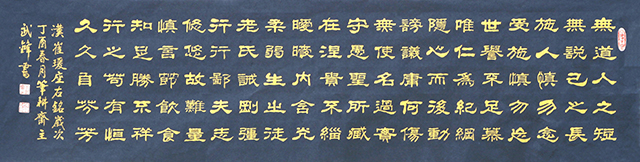 無道人之短
無說己之長
施人慎勿念
受施慎勿忘
世譽不足慕
唯仁為紀綱
隱心而後動
謗議庸何傷
無使名過實
守愚聖所臧
在涅貴不緇
曖曖內含光
柔弱生之徒
老氏誡剛彊
行行鄙夫志
悠悠故難量
慎言節飲食
知足勝不祥
行之苟有恒
久久自芬芳
漢崔瑗座右銘歲次
丁酉春月筆耕齋主
武鋒書